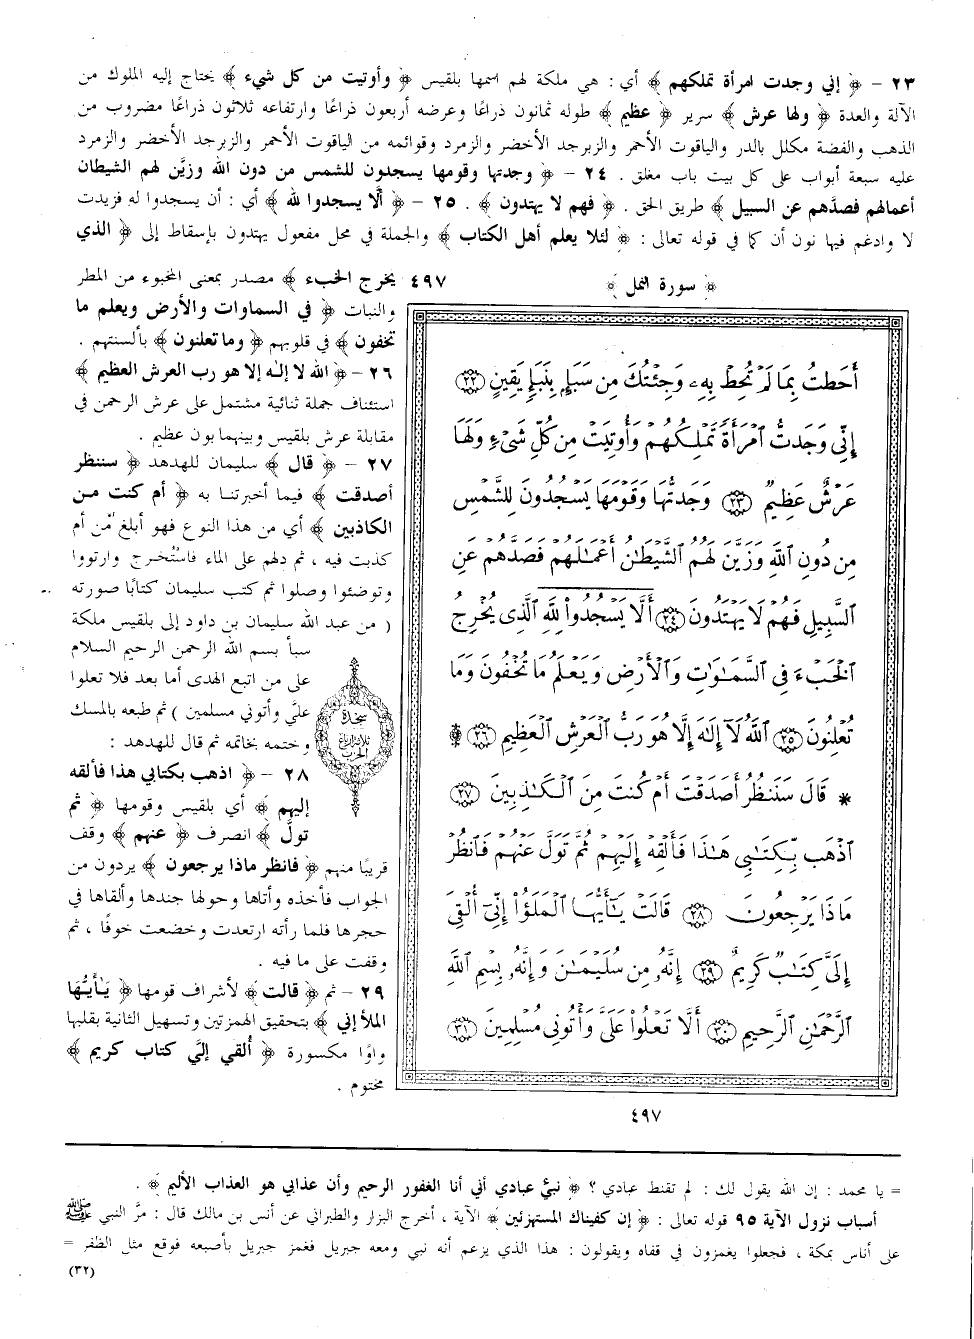 ٢٣ - ﴿ إني وجدت امرأة تملكهم ﴾ أي : هي ملكة لهم اسمها بلقيس ﴿ وأوتيت من كل شيء ﴾ يحتاج إليه الملوك من
الآلة والعدة ﴿ ولها عرش ﴾ سرير ﴿ عظيم ﴾ طوله ثمانون ذراعًا وعرضه أربعون ذراعًا وارتفاعه ثلاثون ذراعًا مضروب من
الذهب والفضة مكلل بالدر والياقوت الأحمر والزبرجد الأخضر والزمرد وقوائمه من الياقوت الأحمر والزبرجد الأخضر والزمرد
عليه سبعة أبواب على كل بيت باب مغلق . ٢٤ - ﴿ وجدتها وقومها يسجدون للشمس من دون الله وزيَّن لهم الشيطان
أعمالهم فصدَّهم عن السبيل ﴾ طريق الحق . ﴿ فهم لا يهتدون ﴾ . ٢٥ - ﴿ ألَّا يسجدوا لله ﴾ أي : أن يسجدوا له فزيدت
لا وادغم فيها نون أن كما في قوله تعالى : ﴿ لئلا يعلم أهل الكتاب ﴾ والجملة في محل مفعول يهتدون بإسقاط إلى ﴿ الذي
يخرج الخبء ﴾ مصدر بمعنى المخبوء من المطر
والنبات ﴿ في السماوات والأرض ويعلم ما
تخفون ﴾ في قلوبهم ﴿ وما تعلنون ﴾ بألسنتهم .
٢٦ - ﴿ الله لا إله إلا هو رب العرش العظيم ﴾
استئناف جملة ثنائية مشتمل على عرش الرحمن في
مقابلة عرش بلقيس وبينهما بون عظيم .
٢٧ - ﴿ قال ﴾ سليمان للهدهد ﴿ سننظر
أصدقت ﴾ فيما أخبرتنا به ﴿ أم كنت من
الكاذبين ﴾ أي من هذا النوع فهو أبلغ من أم
كذبت فيه ، ثم دلهم على الماء فاستُخرج وارتووا
وتوضئوا وصلوا ثم كتب سليمان كتابًا صورته
( من عبد الله سليمان بن داود إلى بلقيس ملكة
سبأ بسم الله الرحمن الرحيم السلام
على من اتبع الهدى أما بعد فلا تعلوا
عليَّ وأتوني مسلمين ) ثم طبعه بالمسك
وختمه بخاتمه ثم قال للهدهد :
٢٨ - ﴿ اذهب بكتابي هذا فألقه
إليهم ﴾ أي بلقيس وقومها ﴿ ثم
تولَّ ﴾ انصرف ﴿ عنهم ﴾ وقف
قريبًا منهم ﴿ فانظر ماذا يرجعون ﴾ يردون من
الجواب فأخذه وأتاها وحولها جندها وألقاها في
حجرها فلما رأته ارتعدت وخضعت خوفًا ، ثم
وقفت على ما فيه .
٢٩ - ثم ﴿ قالت ﴾ لأشراف قومها ﴿ يَـأيُّها
الملأ إني ﴾ بتحقيق الهمزتين وتسهيل الثانية بقلبها
واوًا مكسورة ﴿ ألقي إليَّ كتاب كريم ﴾
مختوم .
سجدة
ثلاثة أرباع
الحزب
﴿ سورة النمل ﴾ ٤٩٧
أَحَطتُ بِمَا لَمْ تُحِطْ بِهِۦ وَجِئْتُكَ مِن سَبَإٍ بِنَبَإٍ يَقِينٍ ﴿٢٢﴾
إِنِّي وَجَدتُّ ٱمْرَأَةً تَمْلِكُهُمْ وَأُوتِيَتْ مِن كُلِّ شَىْءٍ وَلَهَا
عَرْشٌ عَظِيمٌ ﴿٢٣﴾ وَجَدتُّهَا وَقَوْمَهَا يَسْجُدُونَ لِلشَّمْسِ
مِن دُونِ ٱللَّهِ وَزَيَّنَ لَهُمُ ٱلشَّيْطَـٰنُ أَعْمَـٰلَهُمْ فَصَدَّهُمْ عَنِ
ٱلسَّبِيلِ فَهُمْ لَا يَهْتَدُونَ ﴿٢٤﴾ أَلَّا يَسْجُدُوا۟ لِلَّهِ ٱلَّذِى يُخْرِجُ
ٱلْخَبْءَ فِى ٱلسَّمَـٰوَٰتِ وَٱلْأَرْضِ وَيَعْلَمُ مَا تُخْفُونَ وَمَا
تُعْلِنُونَ ﴿٢٥﴾ ٱللَّهُ لَآ إِلَـٰهَ إِلَّا هُوَ رَبُّ ٱلْعَرْشِ ٱلْعَظِيمِ ﴿٢٦﴾ ۩
* قَالَ سَنَنظُرُ أَصَدَقْتَ أَمْ كُنتَ مِنَ ٱلْكَـٰذِبِينَ ﴿٢٧﴾
ٱذْهَب بِّكِتَـٰبِى هَـٰذَا فَأَلْقِهْ إِلَيْهِمْ ثُمَّ تَوَلَّ عَنْهُمْ فَٱنظُرْ
مَاذَا يَرْجِعُونَ ﴿٢٨﴾ قَالَتْ يَـٰٓأَيُّهَا ٱلْمَلَؤُا۟ إِنِّىٓ أُلْقِىَ
إِلَىَّ كِتَـٰبٌ كَرِيمٌ ﴿٢٩﴾ إِنَّهُۥ مِن سُلَيْمَـٰنَ وَإِنَّهُۥ بِسْمِ ٱللَّهِ
ٱلرَّحْمَـٰنِ ٱلرَّحِيمِ ﴿٣٠﴾ أَلَّا تَعْلُوا۟ عَلَىَّ وَأْتُونِى مُسْلِمِينَ ﴿٣١﴾
٤٩٧
= يا محمد : إن الله يقول لك : لم تقنط عبادي ؟ ﴿ نبئ عبادي أني أنا الغفور الرحيم وأن عذابي هو العذاب الأليم ﴾ .
أسباب نزول الآية ٩٥ قوله تعالى : ﴿ إن كفيناك المستهزئين ﴾ الآية ، أخرج البزار والطبراني عن أنس بن مالك قال : مرَّ النبي ﷺ
على أناس بمكة ، فجعلوا يغمزون في قفاه ويقولون : هذا الذي يزعم أنه نبي ومعه جبريل فغمز جبريل بأصبعه فوقع مثل الظفر =
(٣٢)